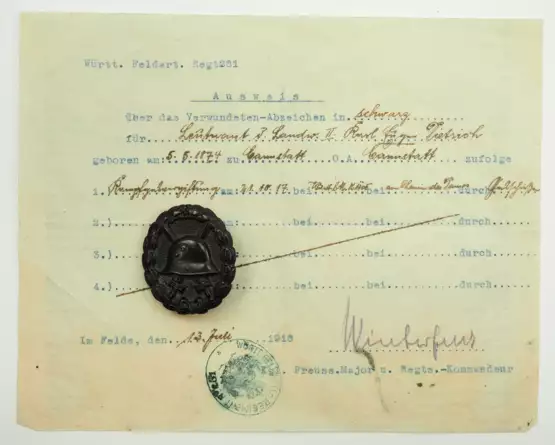 Württ. Feldart. Regt 281
Ausweis
über das Verwundeten-Abzeichen in schwarz
für Leutnant d. Landw. II. Karl Dietrich
geboren am: 5.6.1874 zu Cannstatt O.A. Cannstatt zufolge
1. Kampfgasvergiftung am: 31.10.17. bei bei durch
2.) am: bei bei durch
3.) bei bei durch
4.) bei bei durch
Im Felde, den 13. Juli 1918
Winterfeld
Preuss. Major u. Regts.-Kommandeur